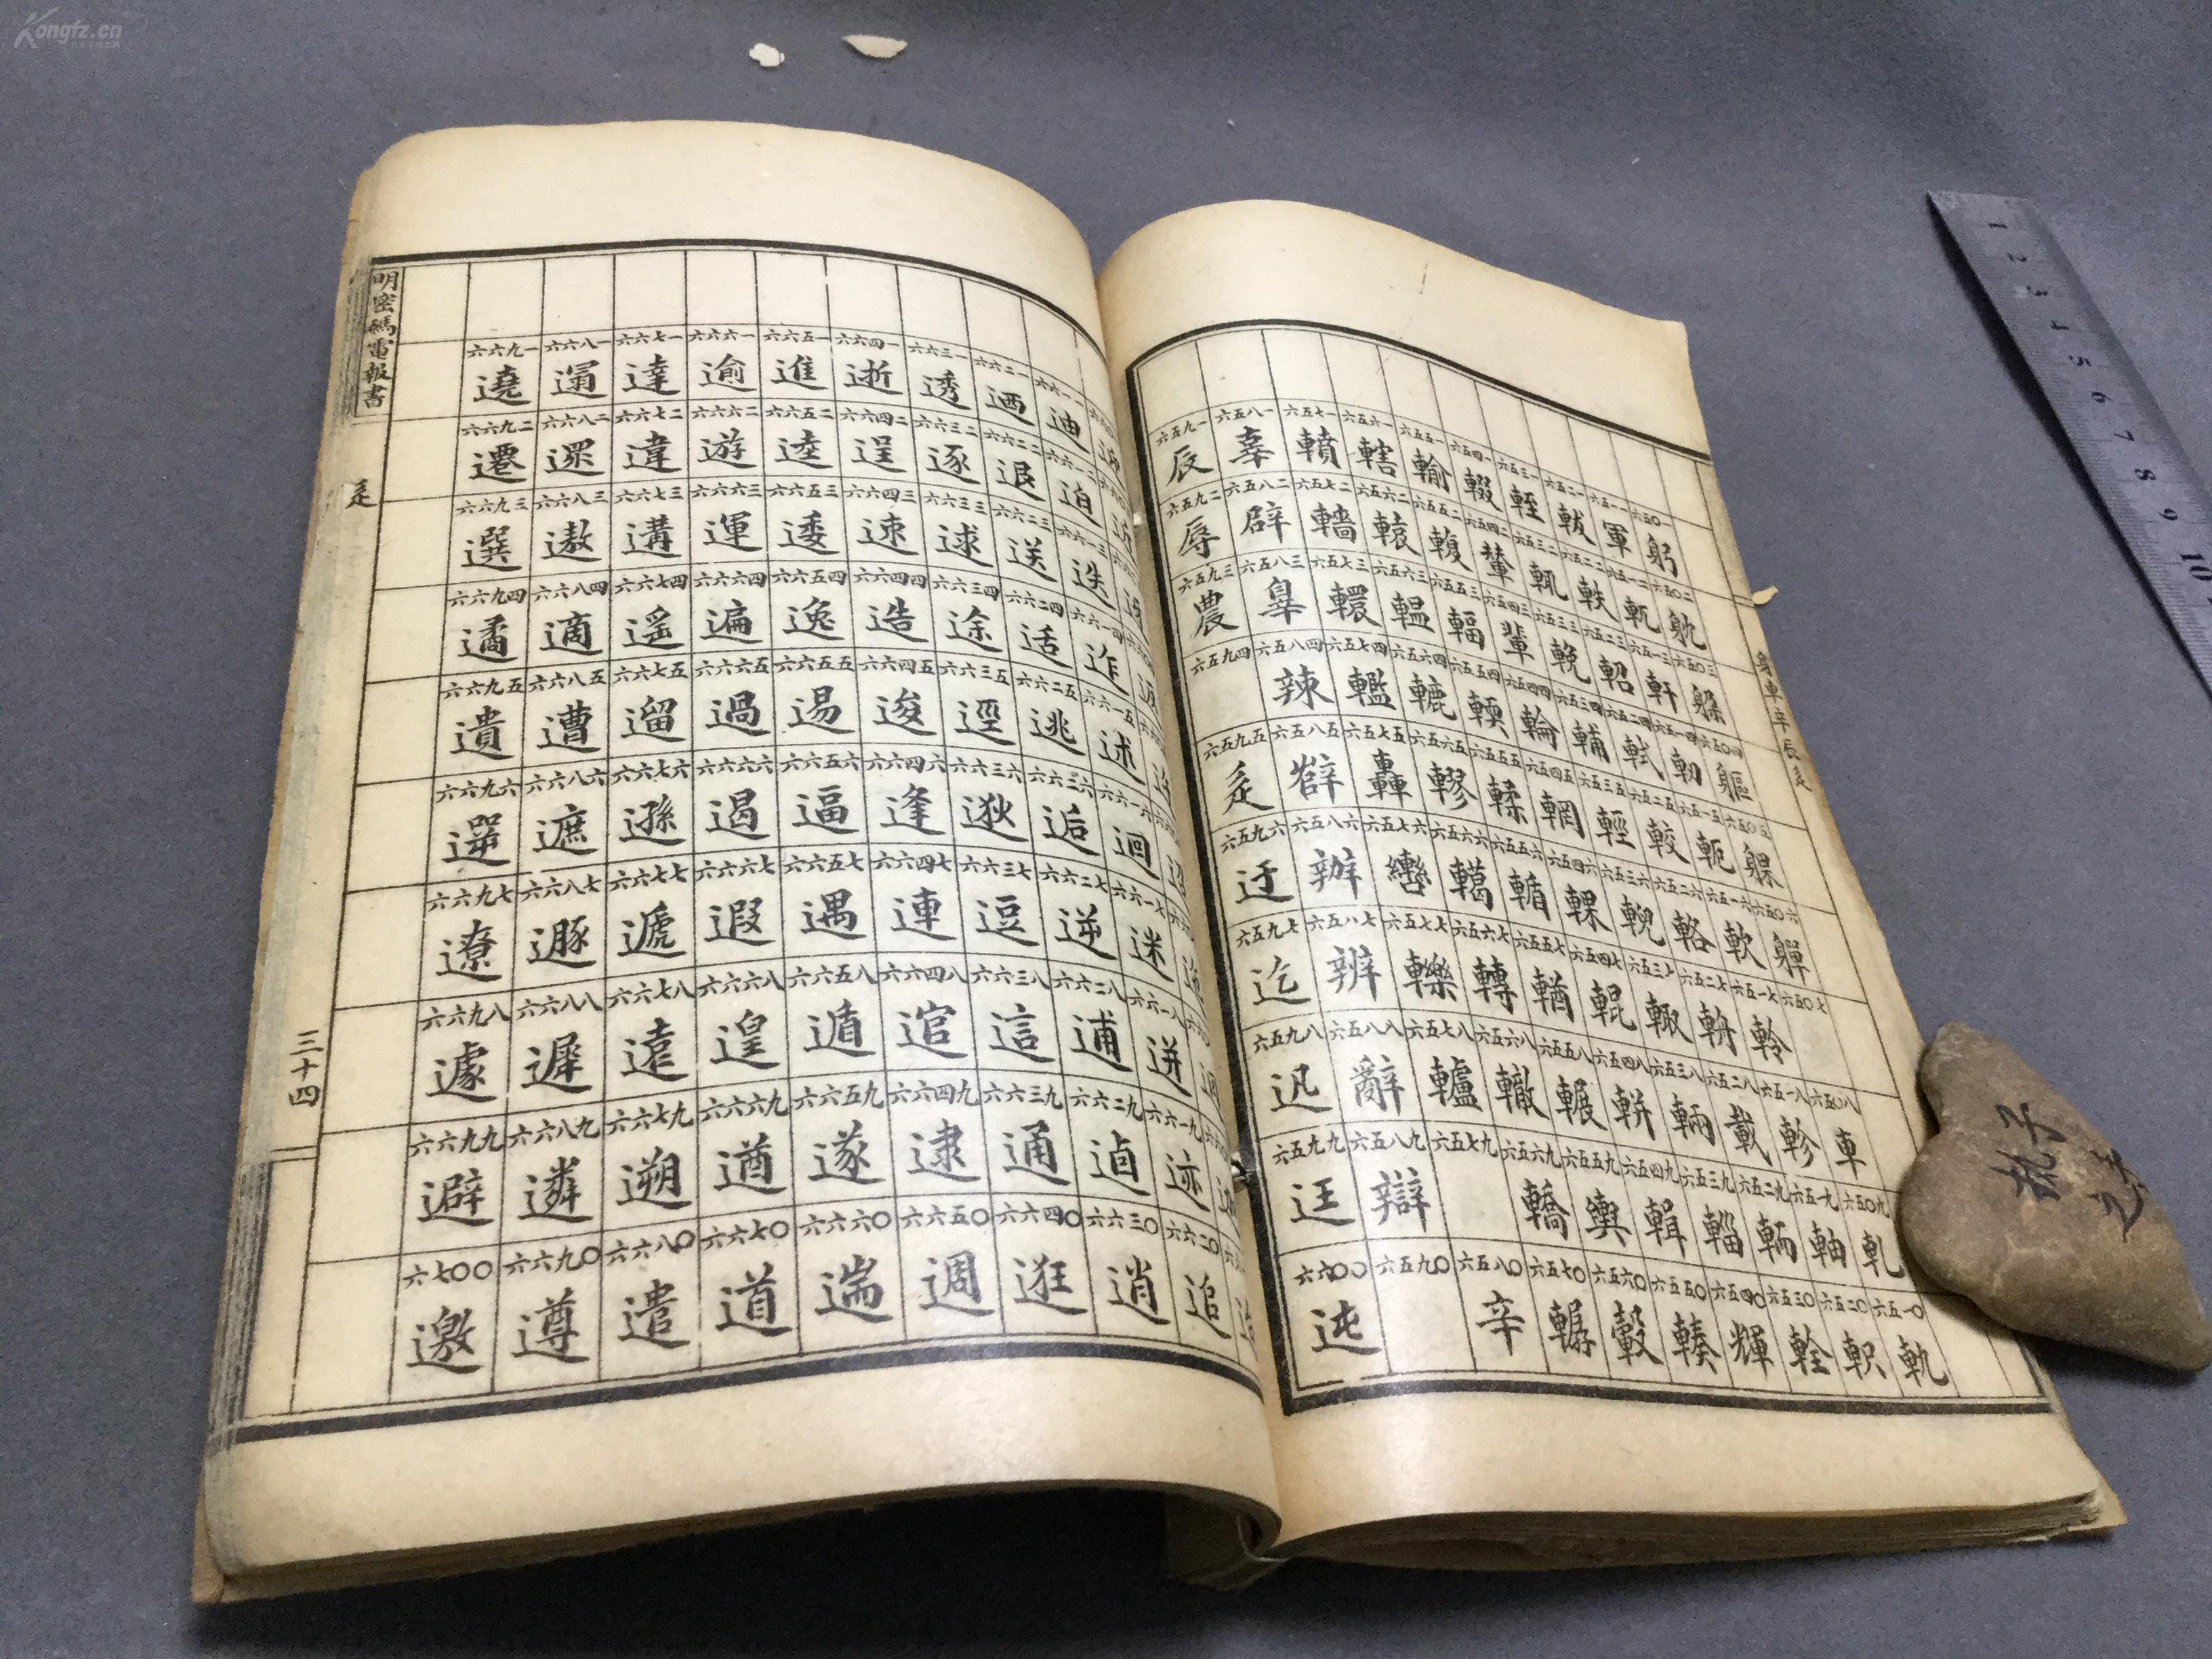 身車辛辰辵
六五〇一 躬 六五〇二 躭 六五〇三 躲 六五〇四 軀 六五〇五 躶 六五〇六 軃 六五〇七 六五〇八 車 六五〇九 軋 六五一〇 軌
六五一一 軍 六五一二 軏 六五一三 軒 六五一四 軔 六五一五 軛 六五一六 軟 六五一七 軨 六五一八 軫 六五一九 軸 六五二〇 軹
六五二一 軷 六五二二 軼 六五二三 軺 六五二四 軾 六五二五 較 六五二六 輅 六五二七 輈 六五二八 載 六五二九 輀 六五三〇 輇
六五三一 輊 六五三二 輒 六五三三 輓 六五三四 輔 六五三五 輕 六五三六 輗 六五三七 輙 六五三八 輛 六五三九 輜 六五四〇 輝
六五四一 輟 六五四二 輦 六五四三 輩 六五四四 輪 六五四五 輞 六五四六 輠 六五四七 輥 六五四八 輧 六五四九 輯 六五五〇 輳
六五五一 輸 六五五二 輹 六五五三 輻 六五五四 輭 六五五五 輮 六五五六 輴 六五五七 輶 六五五八 輾 六五五九 輿 六五六〇 轂
六五六一 轄 六五六二 轅 六五六三 轀 六五六四 轆 六五六五 轇 六五六六 轕 六五六七 轉 六五六八 轍 六五六九 轎 六五七〇 轏
六五七一 轒 六五七二 轖 六五七三 轘 六五七四 轞 六五七五 轟 六五七六 轡 六五七七 轢 六五七八 轤 六五七九 六五八〇 辛
六五八一 辜 六五八二 辟 六五八三 辠 六五八四 辣 六五八五 辥 六五八六 辦 六五八七 辨 六五八八 辭 六五八九 辯 六五九〇
六五九一 辰 六五九二 辱 六五九三 農 六五九四 六五九五 辵 六五九六 迂 六五九七 迄 六五九八 迅 六五九九 迋 六六〇〇 迍
六六一一 迪 六六一二 迫 六六一三 迭 六六一四 迮 六六一五 述 六六一六 迴 六六一七 迷 六六一八 迸 六六一九 迹 六六二〇 追
六六二一 迺 六六二二 退 六六二三 送 六六二四 适 六六二五 逃 六六二六 逅 六六二七 逆 六六二八 逋 六六二九 逌 六六三〇 逍
六六三一 透 六六三二 逐 六六三三 逑 六六三四 途 六六三五 逕 六六三六 逖 六六三七 逗 六六三八 這 六六三九 通 六六四〇 逛
六六四一 逝 六六四二 逞 六六四三 速 六六四四 造 六六四五 逡 六六四六 逢 六六四七 連 六六四八 逭 六六四九 逮 六六五〇 週
六六五一 進 六六五二 逵 六六五三 逶 六六五四 逸 六六五五 逷 六六五六 逼 六六五七 遇 六六五八 遁 六六五九 遂 六六六〇 遄
六六六一 逾 六六六二 遊 六六六三 運 六六六四 遍 六六六五 過 六六六六 遏 六六六七 遐 六六六八 遑 六六六九 遒 六六七〇 道
六六七一 達 六六七二 違 六六七三 遘 六六七四 遙 六六七五 遛 六六七六 遜 六六七七 遞 六六七八 遠 六六七九 遡 六六八〇 遣
六六八一 遢 六六八二 遝 六六八三 遨 六六八四 適 六六八五 遭 六六八六 遮 六六八七 遯 六六八八 遲 六六八九 遴 六六九〇 遵
六六九一 遶 六六九二 遷 六六九三 選 六六九四 遹 六六九五 遺 六六九六 遻 六六九七 遼 六六九八 遽 六六九九 避 六七〇〇 邀
明密碼電報書
辵
三十四
Kongfz.cn
1 2 3 4 5 6 7 8 9 10